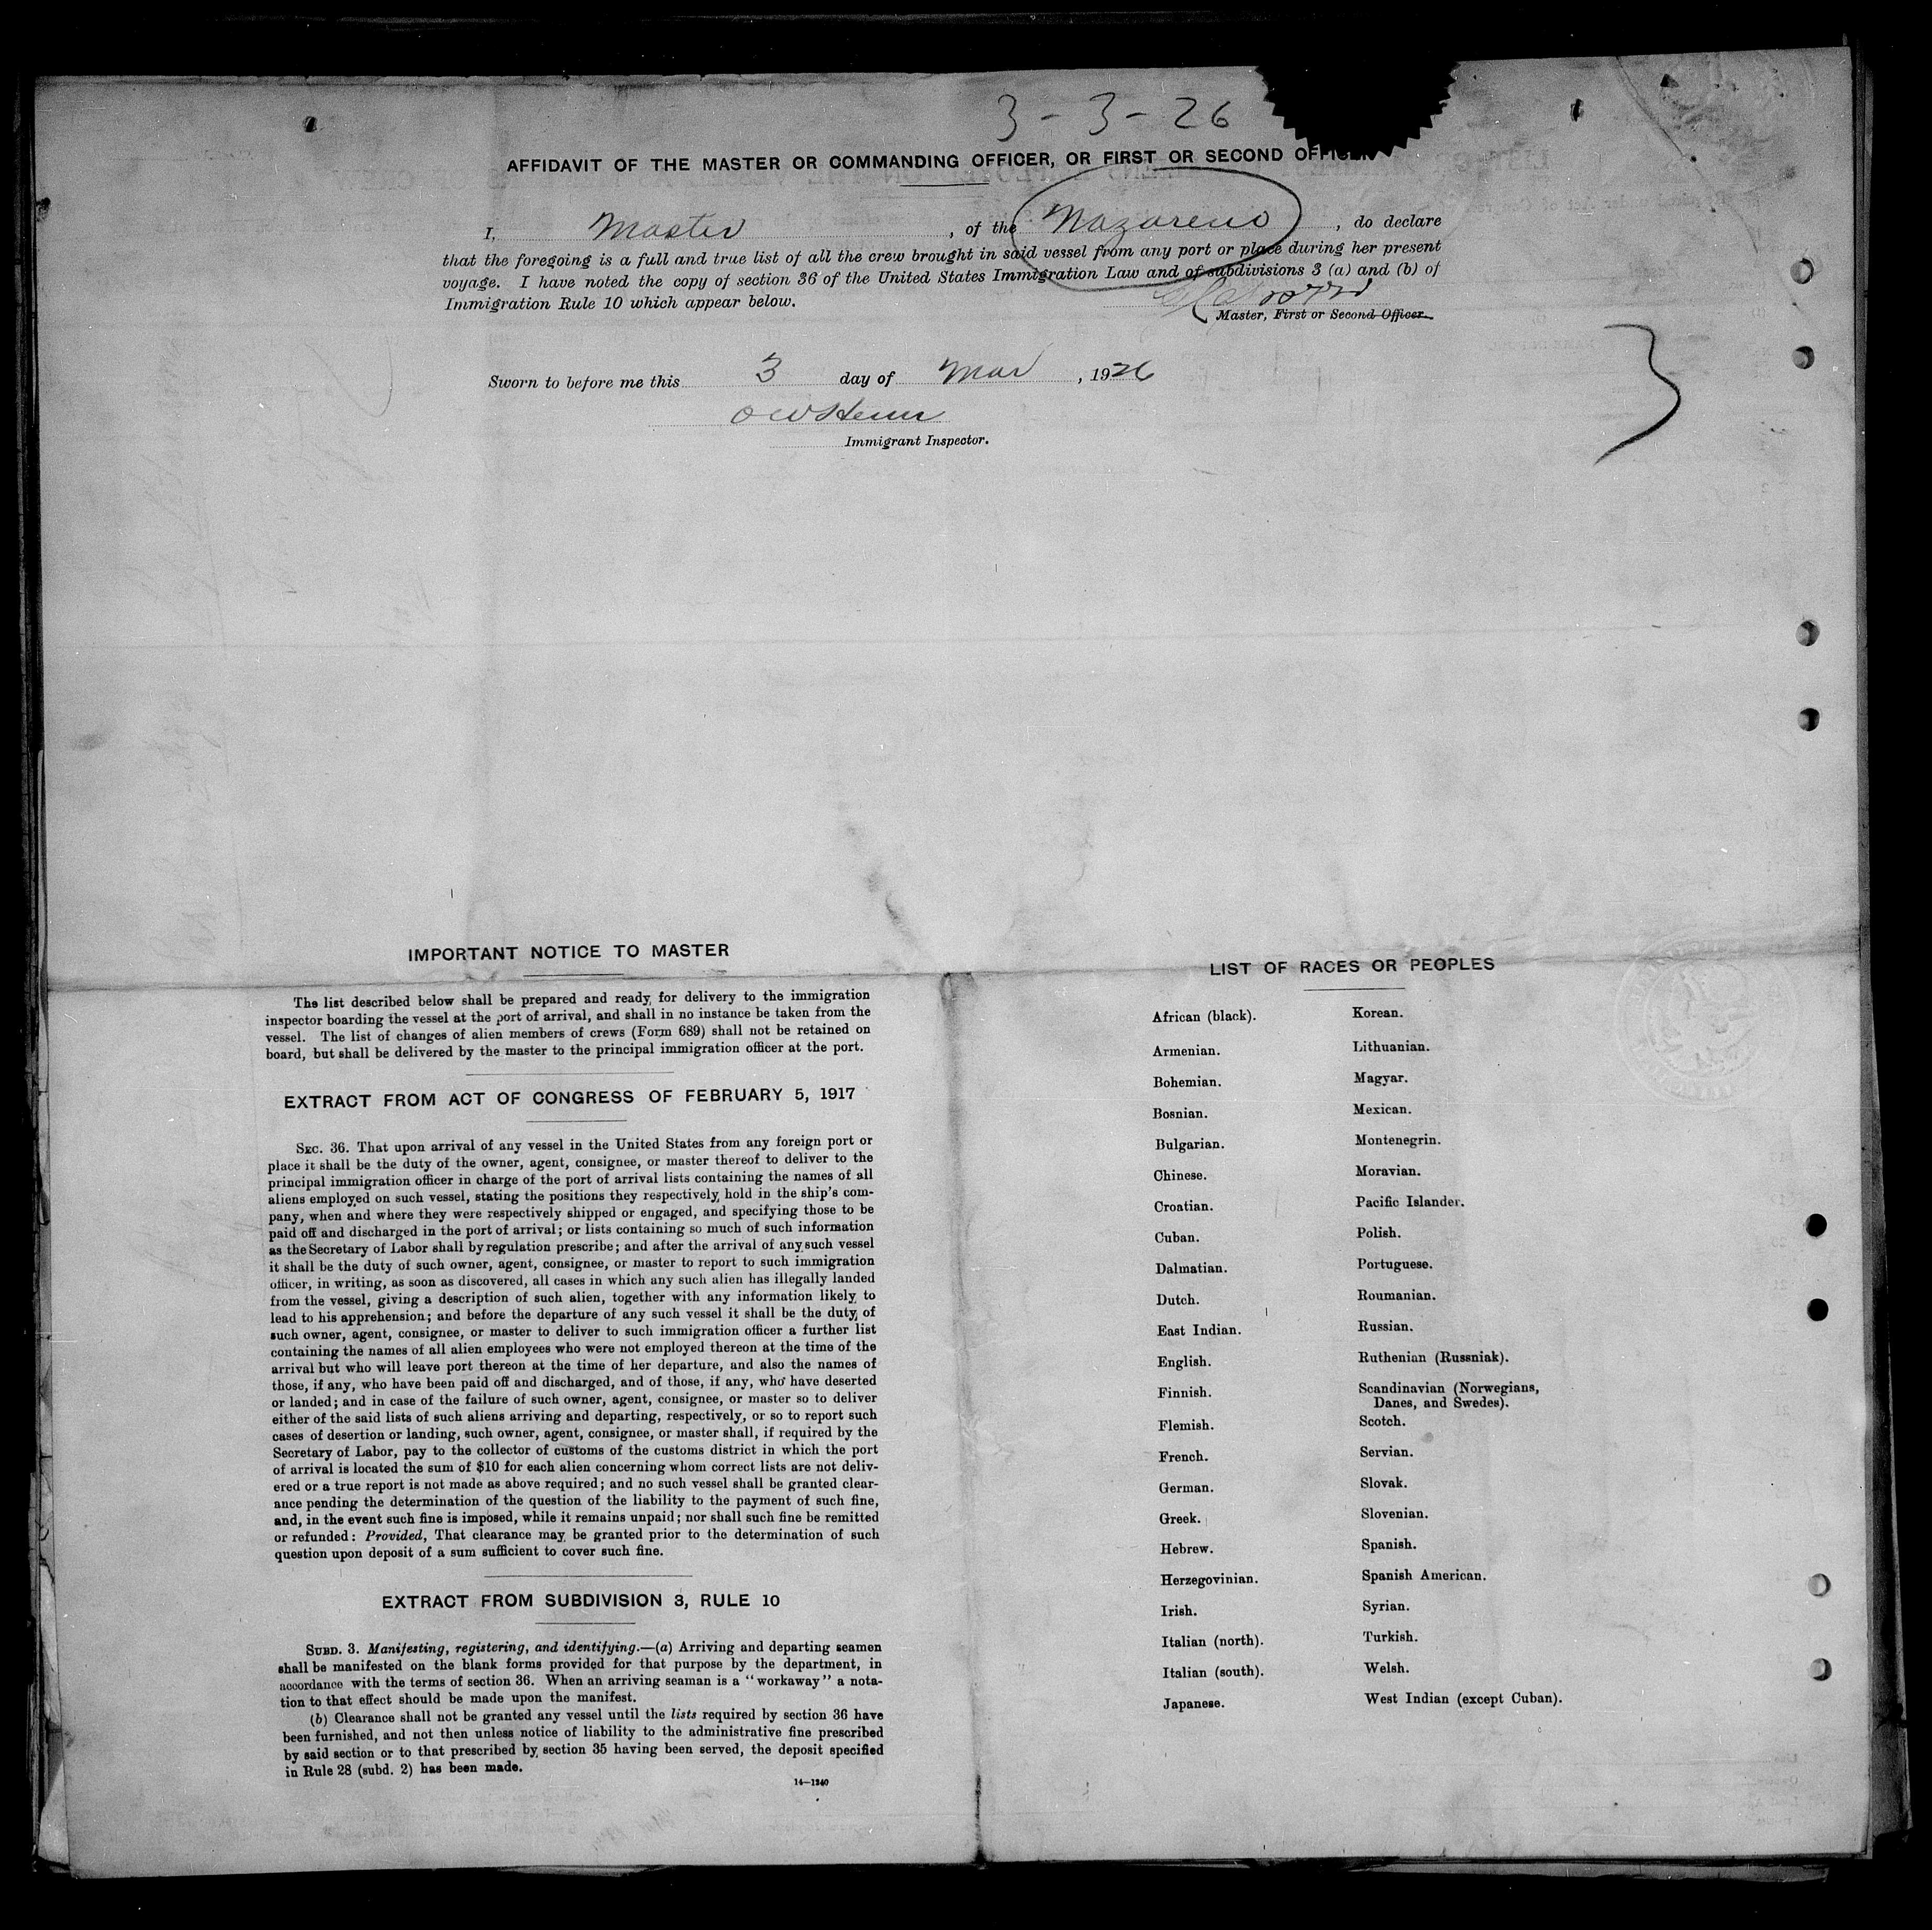 3-3-26
AFFIDAVIT OF THE MASTER OR COMMANDING OFFICER, OR FIRST OR SECOND OFFICER
I, Master, of the Nazareno, do declare
that the foregoing is a full and true list of all the crew brought in said vessel from any port or place during her present
voyage. I have noted the copy of section 36 of the United States Immigration Law and of subdivisions 3 (a) and (b) of
Immigration Rule 10 which appear below.
Master, First or Second Officer.
3
Sworn to before me this 3 day of Mar, 1926
Immigrant Inspector.
IMPORTANT NOTICE TO MASTER
The list described below shall be prepared and ready for delivery to the immigration
inspector boarding the vessel at the port of arrival, and shall in no instance be taken from the
vessel. The list of changes of alien members of crews (Form 689) shall not be retained on
board, but shall be delivered by the master to the principal immigration officer at the port.
EXTRACT FROM ACT OF CONGRESS OF FEBRUARY 5, 1917
SEC. 36. That upon arrival of any vessel in the United States from any foreign port or
place it shall be the duty of the owner, agent, consignee, or master thereof to deliver to the
principal immigration officer in charge of the port of arrival lists containing the names of all
aliens employed on such vessel, stating the positions they respectively hold in the ship's com-
pany, when and where they were respectively shipped or engaged, and specifying those to be
paid off and discharged in the port of arrival; or lists containing so much of such information
as the Secretary of Labor shall by regulation prescribe; and after the arrival of any such vessel
it shall be the duty of such owner, agent, consignee, or master to report to such immigration
officer, in writing, as soon as discovered, all cases in which any such alien has illegally landed
from the vessel, giving a description of such alien, together with any information likely to
lead to his apprehension; and before the departure of any such vessel it shall be the duty of
such owner, agent, consignee, or master to deliver to such immigration officer a further list
containing the names of all alien employees who were not employed thereon at the time of the
arrival but who will leave port thereon at the time of her departure, and also the names of
those, if any, who have been paid off and discharged, and of those, if any, who have deserted
or landed; and in case of the failure of such owner, agent, consignee, or master so to deliver
either of the said lists of such aliens arriving and departing, respectively, or so to report such
cases of desertion or landing, such owner, agent, consignee, or master shall, if required by the
Secretary of Labor, pay to the collector of customs of the customs district in which the port
of arrival is located the sum of $10 for each alien concerning whom correct lists are not deliv-
ered or a true report is not made as above required; and no such vessel shall be granted clear-
ance pending the determination of the question of the liability to the payment of such fine,
and, in the event such fine is imposed, while it remains unpaid; nor shall such fine be remitted
or refunded: Provided, That clearance may be granted prior to the determination of such
question upon deposit of a sum sufficient to cover such fine.
EXTRACT FROM SUBDIVISION 3, RULE 10
SUBD. 3. Manifesting, registering, and identifying.—(a) Arriving and departing seamen
shall be manifested on the blank forms provided for that purpose by the department, in
accordance with the terms of section 36. When an arriving seaman is a "workaway" a nota-
tion to that effect should be made upon the manifest.
(b) Clearance shall not be granted any vessel until the lists required by section 36 have
been furnished, and not then unless notice of liability to the administrative fine prescribed
by said section or to that prescribed by section 35 having been served, the deposit specified
in Rule 28 (subd. 2) has been made.
14—1240
LIST OF RACES OR PEOPLES
African (black).
Armenian.
Bohemian.
Bosnian.
Bulgarian.
Chinese.
Croatian.
Cuban.
Dalmatian.
Dutch.
East Indian.
English.
Finnish.
Flemish.
French.
German.
Greek.
Hebrew.
Herzegovinian.
Irish.
Italian (north).
Italian (south).
Japanese.
Korean.
Lithuanian.
Magyar.
Mexican.
Montenegrin.
Moravian.
Pacific Islander.
Polish.
Portuguese.
Roumanian.
Russian.
Ruthenian (Russniak).
Scandinavian (Norwegians,
Danes, and Swedes).
Scotch.
Servian.
Slovak.
Slovenian.
Spanish.
Spanish American.
Syrian.
Turkish.
Welsh.
West Indian (except Cuban).